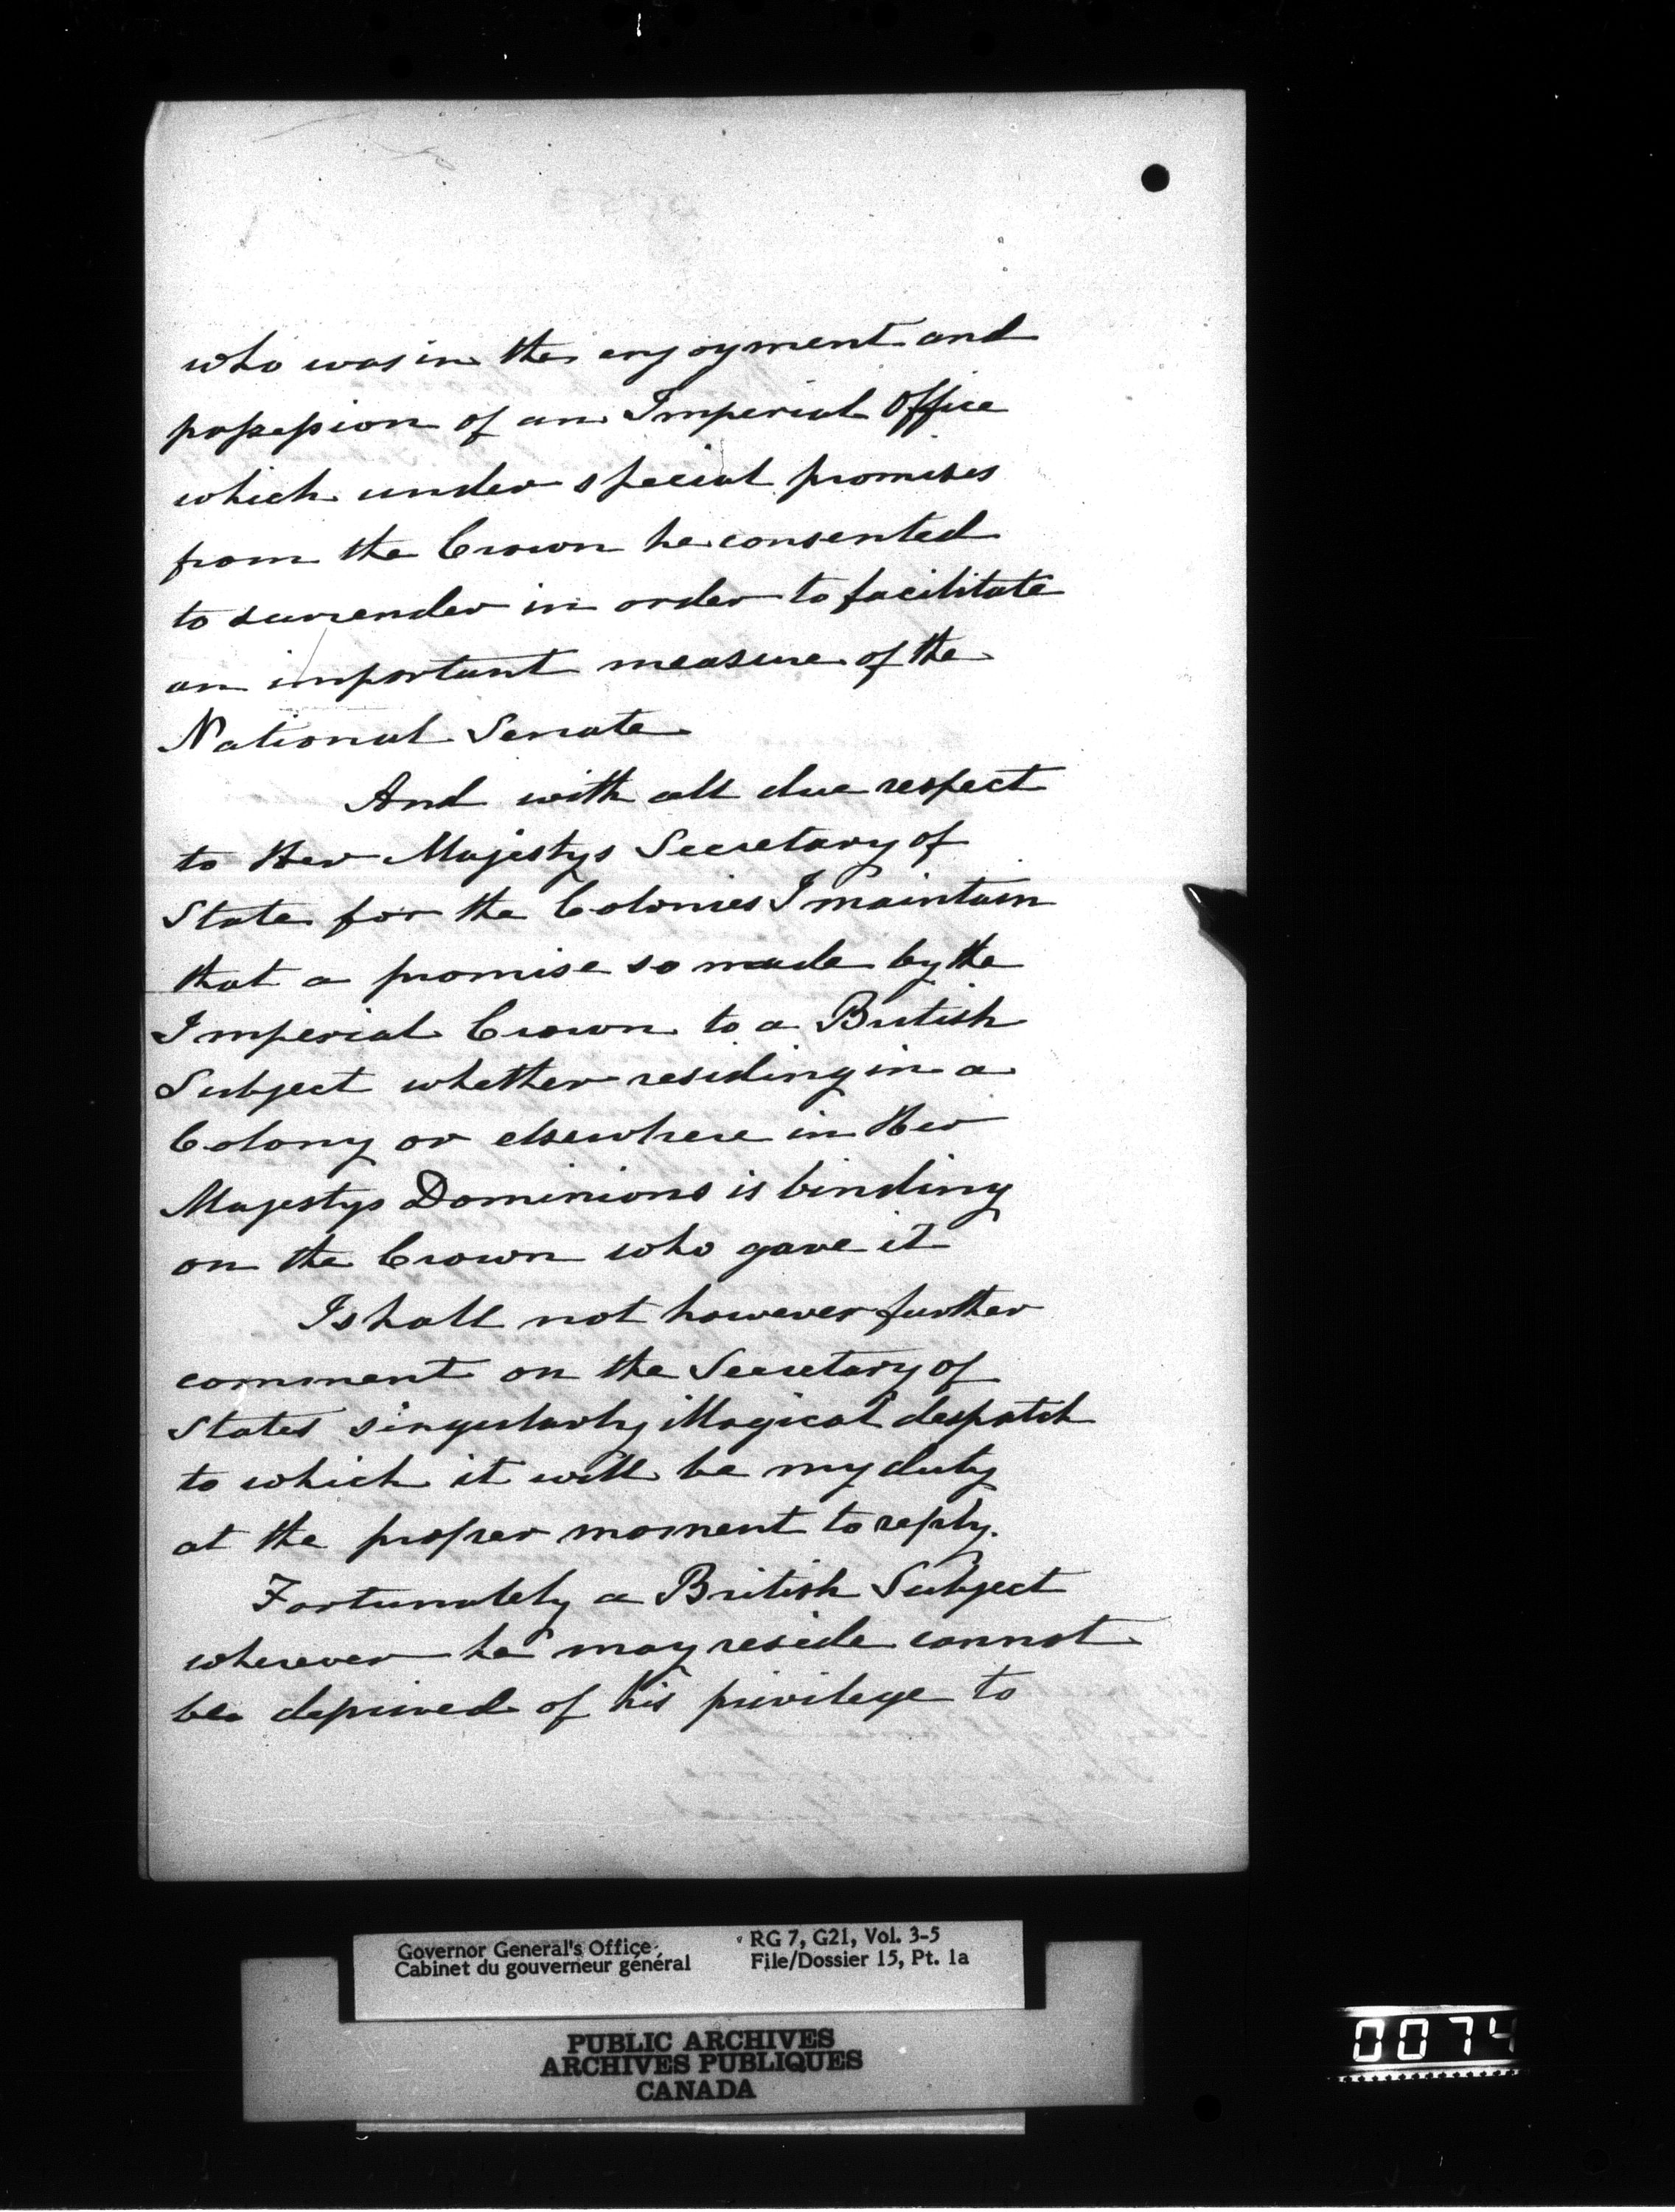 who was in the enjoyment and
possession of an Imperial Office
which under special promises
from the Crown he consented
to surrender in order to facilitate
an important measure of the
National Senate
And with all due respect
to Her Majestys Secretary of
State for the Colonies I maintain
that a promise so made by the
Imperial Crown to a British
Subject whether residing in a
Colony or elsewhere in Her
Majestys Dominions is binding
on the Crown who gave it
I shall not however further
comment on the Secretary of
States singularly illogical despatch
to which it will be my duty
at the proper moment to reply.
Fortunately a British Subject
wherever he may reside cannot
be deprived of his privilege to
Governor General's Office
Cabinet du gouverneur général
RG 7, G21, Vol. 3-5
File/Dossier 15, Pt. 1a
PUBLIC ARCHIVES
ARCHIVES PUBLIQUES
CANADA
0074